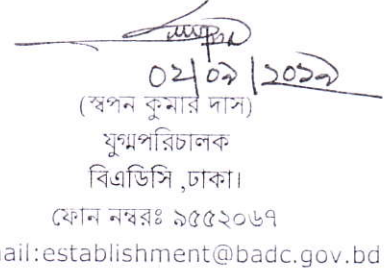 ০২/০৯/২০১৯
(স্বপন কুমার দাস)
যুগ্মপরিচালক
বিএডিসি ,ঢাকা।
ফোন নম্বরঃ ৯৫৫২০৬৭
ail:establishment@badc.gov.bd